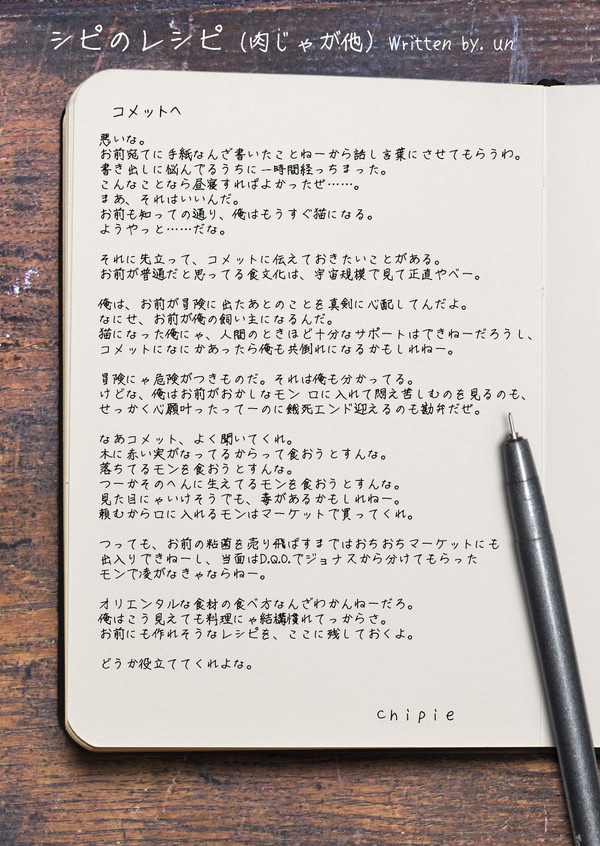 シピのレシピ（肉じゃが他）Written by. un
コメットへ
悪いな。
お前宛てに手紙なんざ書いたことねーから話し言葉にさせてもらうわ。
書き出しに悩んでるうちに一時間経っちまった。
こんなことなら昼寝すればよかったぜ……。
まあ、それはいいんだ。
お前も知っての通り、俺はもうすぐ猫になる。
ようやっと……だな。
それに先立って、コメットに伝えておきたいことがある。
お前が普通だと思ってる食文化は、宇宙規模で見て正直やべー。
俺は、お前が冒険に出たあとのことを真剣に心配してんだよ。
なにせ、お前が俺の飼い主になるんだ。
猫になった俺にゃ、人間のときほど十分なサポートはできねーだろうし、
コメットになにかあったら俺も共倒れになるかもしれねー。
冒険にゃ危険がつきものだ。それは俺も分かってる。
けどな、俺はお前がおかしなモン 口に入れて悶え苦しむのを見るのも、
せっかく心願叶ったってーのに餓死エンド迎えるのも勘弁だぜ。
なあコメット、よく聞いてくれ。
木に赤い実がなってるからって食おうとすんな。
落ちてるモンを食おうとすんな。
つーかそのへんに生えてるモンを食おうとすんな。
見た目にゃいけそうでも、毒があるかもしれねー。
頼むから口に入れるモンはマーケットで買ってくれ。
つっても、お前の粘菌を売り飛ばすまではおちおちマーケットにも
出入りできねーし、当面はD.Q.O.でジョナスから分けてもらった
モンで凌がなきゃならねー。
オリエンタルな食材の食べ方なんざわかんねーだろ。
俺はこう見えても料理にゃ結構慣れてっからさ。
お前にも作れそうなレシピを、ここに残しておくよ。
どうか役立ててくれよな。
chipie